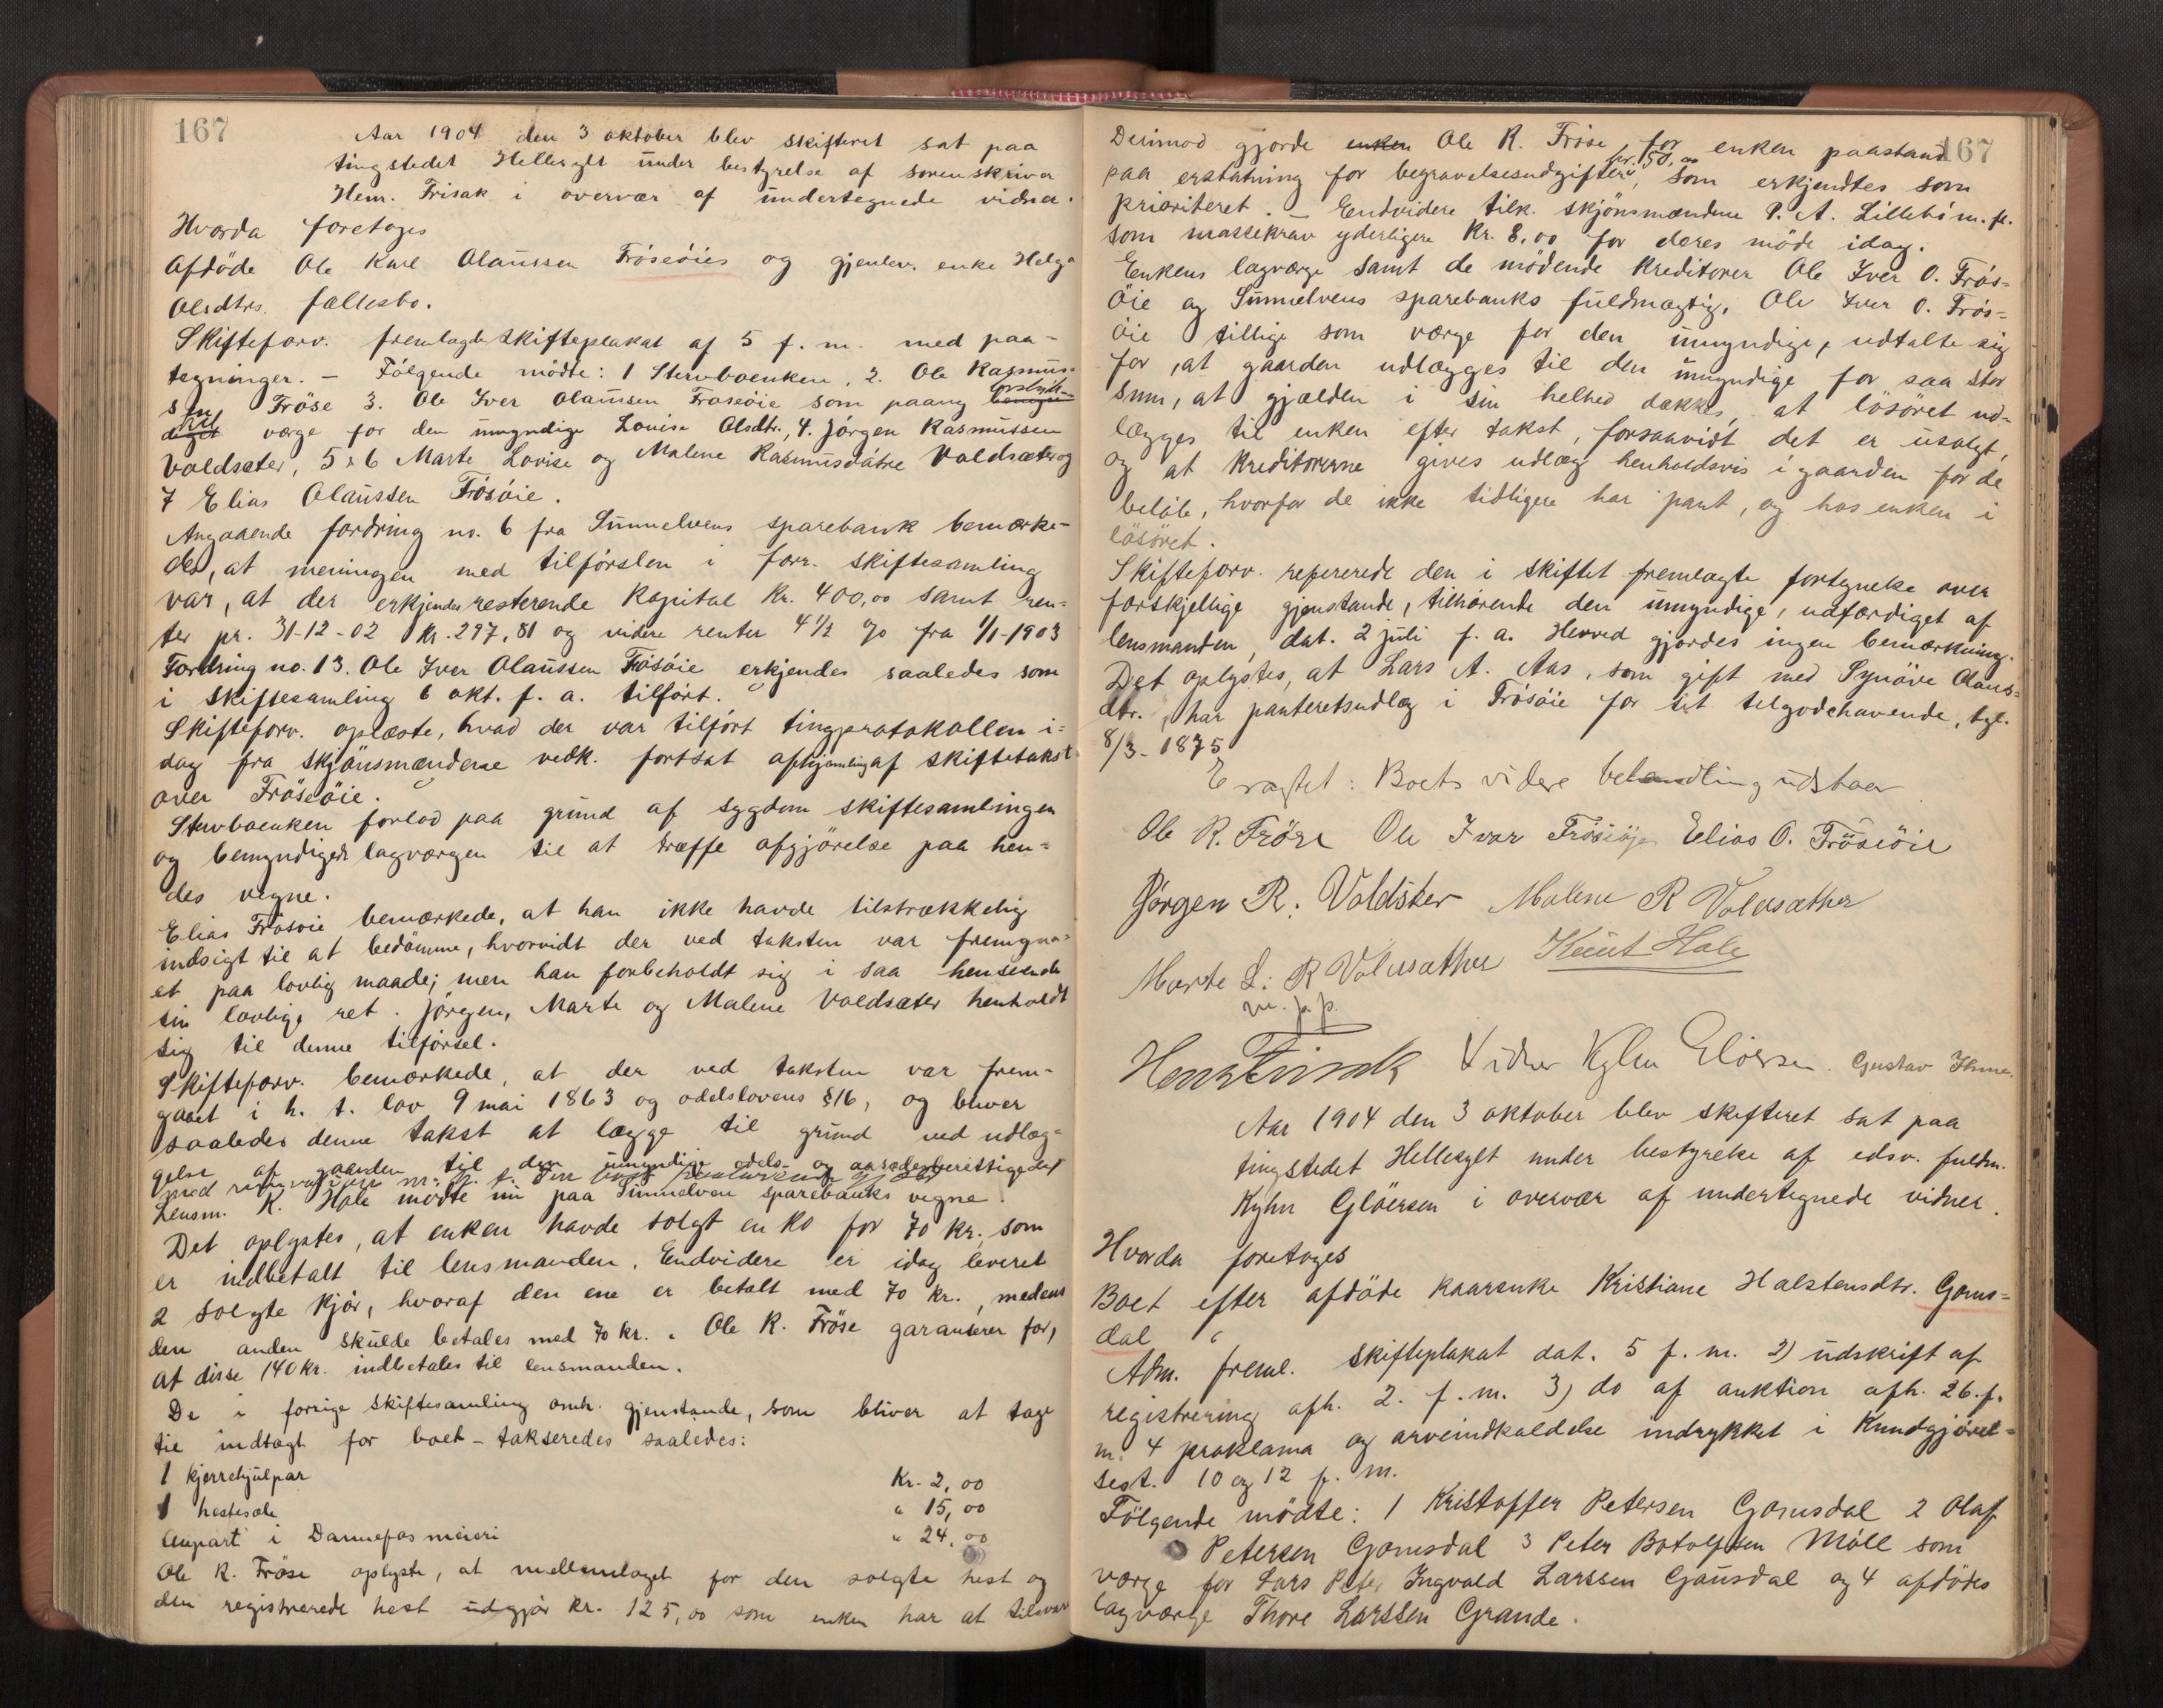 167
Aar 1904 den 3 oktober blev skifteret sat paa
tingstedet Hellesylt under bestyrelse af sorenskriver
Henr. Frisak i overvær af undertegnede vidner.
Hvorda foretoges
Afdöde Ole Karl Olaussen Fröseöies og gjenlev. enke Helga
Olsdtrs. fællesbo.
Skifteforv. fremlagde skifteplakat af 5 f. m. med paa-
tegninger. – Følgende mödte: 1 Stervboenken, 2. Ole Rasmus-
sen Fröse 3. Ole Iver Olaussen Fröseöie som paany
værge for den umyndige Louise Olsdtr., 4. Jörgen Rasmussen
Voldsæter, 5 & 6 Marte Lovise og Malene Rasmusdötre Voldsæter og
7 Elias Olaussen Frösöie.
Angaaende fordring no. 6 fra Sunnelvens sparebank bemærke-
des, at meningen med tilförslen i forr. skiftesamling
var, at der erkjendes resterende kapital Kr. 400,00 samt ren-
ter pr. 31-12-02 Kr. 297,81 og videre renter 4½ % fra 1/1-1903
Fordring no. 13. Ole Iver Olaussen Frösöie erkjendes saaledes som
i skiftesamling 6 okt. f. a. tilfört.
Skifteforv. oplæste, hvad der var tilfört tingprotokollen i-
dag fra skjönsmændene vedk. fortsat afhjemling af skiftetakst
over Fröseöie.
Stervboenken forlod paa grund af sygdom skiftesamlingen
og bemyndigede lagværgen til at træffe afgjörelse paa hen-
des vegne.
Elias Frösöie bemærkede, at han ikke havde tilstrækkelig
indsigt til at bedömme, hvorvidt der ved taksten var fremgaa-
et paa lovlig maade; men han forbeholdt sig i saa henseende
sin lovlige ret. Jörgen, Marte og Malene Voldsæter henholdt
sig til denne tilförsel.
Skifteforv. bemærkede, at der ved taksten var frem-
gaaet i h. t. lov 9 mai 1863 og odelslovens §16, og bliver
saaledes denne takst at lægge til grund ved udlæg-
gelse af gaarden til den umyndige odels- og aasædesberettigede
med
Lensm. K. Hole mödte nu paa Sunnelven sparebanks vegne.
Det oplystes, at enken havde solgt en ko for 70 kr., som
er indbetalt til lensmanden. Endvidere er idag leveret
2 solgte kjör, hvoraf den ene er betalt med 70 kr., medens
den anden skulde betales med 70 kr. Ole R. Fröse garanterer for,
at disse 140 kr. indbetales til lensmanden.
De i forrige skiftesamling omh. gjenstande, som bliver at tage
til indtægt for boet – takseredes saaledes:
1 kjerrehjulpar Kr. 2,00
1 hestesele " 15,00
Anpart i Dannefos meieri " 24,00
Ole R. Fröse oplyste, at mellemlaget for den solgte hest og
den registrerede hest udgjör Kr. 125,00 som enken har at tilsvare
167
Derimod gjorde enken Ole R. Fröse for enken paastand
kr. 150,00
paa erstatning for begravelsesudgifter, som erkjendtes som
prioriteret. – Endvidere tilk. skjönsmændene P. A. Lillebö m. fl.
som massekrav yderligere Kr. 8,00 for deres möde idag.
Enkens lagværge samt de mödende kreditorer Ole Iver O. Frös-
öie og Sunnelvens sparebanks fuldmægtig, Ole Iver O. Frös-
öie tillige som værge for den umyndige, udtalte sig
for, at gaarden udlægges til den umyndige for saa stor
sum, at gjælden i sin helhed dækkes, at lösöret ud-
lægges til enken efter takst, forsaavidt det er usolgt,
og at kreditorerne gives udlæg henholdsvis i gaarden for de
belöb, hvorfor de ikke tidligere har pant, og hos enken i
lösöret.
Skifteforv. refererede den i skiftet fremlagte fortegnelse over
forskjellige gjenstande, tilhörende den umyndige, udfærdiget af
lensmanden, dat. 2 juli f. a. Herved gjordes ingen bemærkning.
Det oplystes, at Lars A. Aas, som gift med Synöve Olaus-
dtr., har panteretsudlæg i Frösöie for sit tilgodehavende, tgl.
8/3-1875
Eragtet: Boets videre behandling udstaar
Ole R. Fröse Ole Ivar Frösöje Elias O. Fröseöie
Jörgen R. Voldsæter Malene R Voldsæther
Marte L. R Voldsæther Knut Hole
m. p. p.
Henr Frisak Vidner Kyhn Glöersen. Gustav
Aar 1904 den 3 oktober blev skifteret sat paa
tingstedet Hellesylt under bestyrelse af edsv. fuldm.
Kyhn Glöersen i overvær af undertegnede vidner.
Hvorda foretoges
Boet efter afdöde kaarenke Kristiane Halstensdtr. Goms-
dal
Adm. freml. skifteplakat dat. 5 f. m. 2) udskrift af
registrering afh. 2. f. m. 3) do af auktion afh. 26. f.
m. 4 proklama og arveindkaldelse indrykket i Kundgjörel-
sest. 10 og 12 f. m.
Følgende mödte: 1 Kristoffer Petersen Gomsdal 2 Olaf
Petersen Gomsdal 3 Peter Botolfsen Möll som
værge for Lars Peter Ingvald Larssen Gausdal og 4 afdödes
lagværge Thore Larssen Grande.